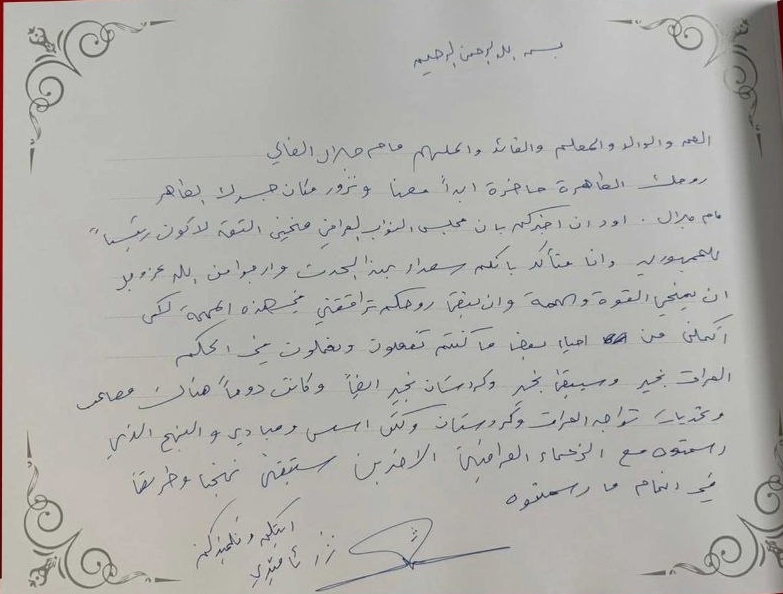 بسم الله الرحمن الرحيم
العم والوالد والمعلم والقائد والملهم مام جلال الغالي
روحك الطاهرة حاضرة ابداً معنا ونزور مكان جسدك الطاهر
مام جلال . اود ان اخبركم بان مجلس النواب العراقي منحني الثقة لاكون رئيساً
للجمهورية وانا متأكد بانكم سعداء بهذا الحدث وارجوا من الله عزوجل
ان يمنحني القوة والهمة وان تبقى روحكم ترافقني في هذه المهمة لكي
اتمكن من احياء بعض ما كنتم تفعلون وتعملون في الحكم
العراق بخير وسيبقى بخير وكردستان بخير ايضاً وكانت دوماً هناك مصاعب
وتحديات تواجه العراق وكردستان ولكن اسس ومبادئ والنهج الذي
رسمتوه مع الزعماء العراقيين الاخرين ستبقى نهجنا وطريقنا
في اتمام ما رسمتوه
ابنكم وتلميذكم
نزار ئاميدي